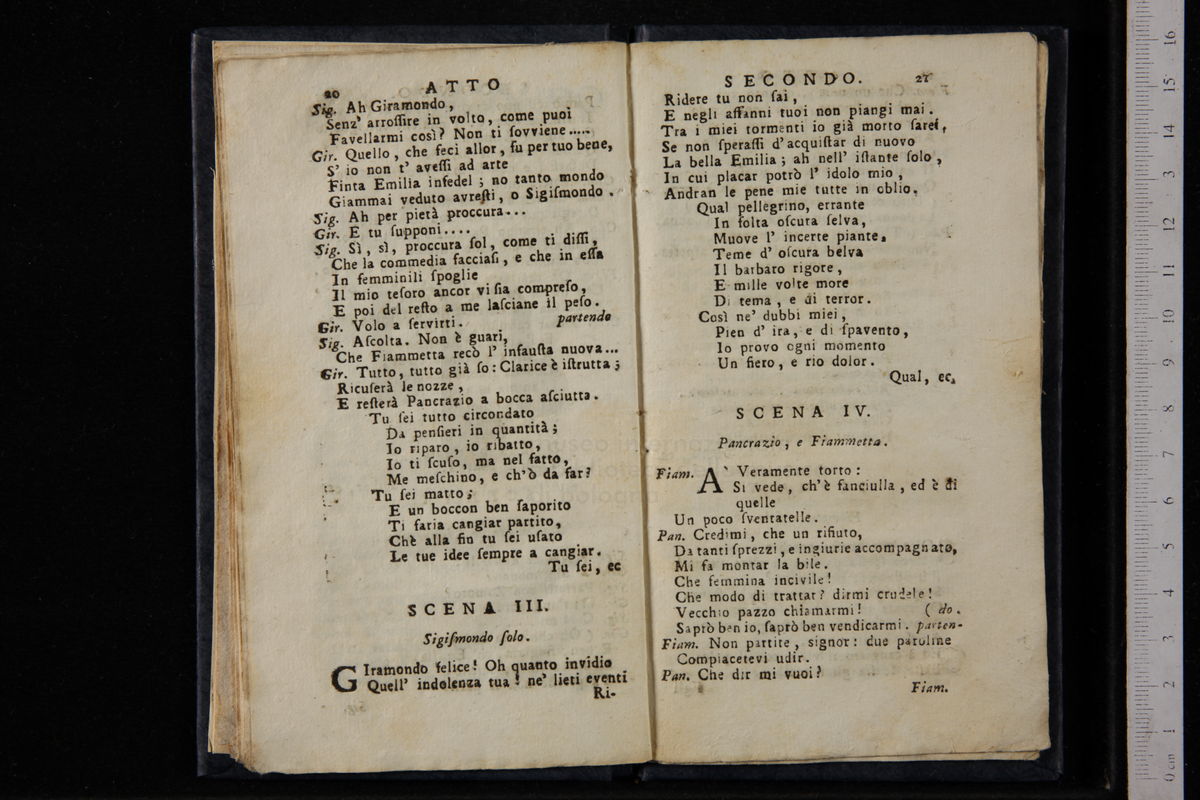 20
ATTO
Sig. Ah Giramondo,
Senz' arroſſire in volto, come puoi
Favellarmi così? Non ti ſovviene.....
Gir. Quello, che feci allor, fu per tuo bene,
S' io non t' aveſſi ad arte
Finta Emilia infedel; no tanto mondo
Giammai veduto avreſti, o Sigiſmondo.
Sig. Ah per pietà proccura...
Gir. E tu ſupponi....
Sig. Sì, sì, proccura ſol, come ti diſſi,
Che la commedia facciaſi, e che in eſſa
In femminili ſpoglie
Il mio teſoro ancor vi ſia compreſo,
E poi del reſto a me laſciane il peſo.
Gir. Volo a ſervirti. partendo
Sig. Aſcolta. Non è guari,
Che Fiammetta recò l' infauſta nuova...
Gir. Tutto, tutto già ſo: Clarice è iſtrutta;
Ricuſerà le nozze,
E reſterà Pancrazio a bocca aſciutta.
Tu ſei tutto circondato
Da penſieri in quantità;
Io riparo, io ribatto,
Io ti ſcuſo, ma nel fatto,
Me meſchino, e ch'ò da far?
Tu ſei matto;
E un boccon ben ſaporito
Ti faria cangiar partito,
Chè alla fin tu ſei uſato
Le tue idee ſempre a cangiar.
Tu ſei, ec
SCENA III.
Sigiſmondo ſolo.
GIramondo felice! Oh quanto invidio
Quell' indolenza tua! ne' lieti eventi
Ri-
SECONDO.
21
Ridere tu non ſai,
E negli affanni tuoi non piangi mai.
Tra i miei tormenti io già morto ſarei,
Se non ſperaſſi d'acquiſtar di nuovo
La bella Emilia; ah nell' iſtante ſolo,
In cui placar potrò l' idolo mio,
Andran le pene mie tutte in oblio.
Qual pellegrino, errante
In folta oſcura ſelva,
Muove l' incerte piante,
Teme d' oſcura belva
Il barbaro rigore,
E mille volte more
Di tema, e di terror.
Così ne' dubbi miei,
Pien d' ira, e di ſpavento,
Io provo ogni momento
Un fiero, e rio dolor.
Qual, ec.
SCENA IV.
Pancrazio, e Fiammetta.
Fiam. A` Veramente torto:
Si vede, ch'è fanciulla, ed è di
quelle
Un poco ſventatelle.
Pan. Credimi, che un rifiuto,
Da tanti ſprezzi, e ingiurie accompagnato,
Mi fa montar la bile.
Che femmina incivile!
Che modo di trattar? dirmi crudele!
Vecchio pazzo chiamarmi! ( do.
Saprò ben io, ſaprò ben vendicarmi. parten-
Fiam. Non partite, signor: due paroline
Compiacetevi udir.
Pan. Che dir mi vuoi?
Fiam.
0 cm 1 2 3 4 5 6 7 8 9 10 11 12 3 14 15 16